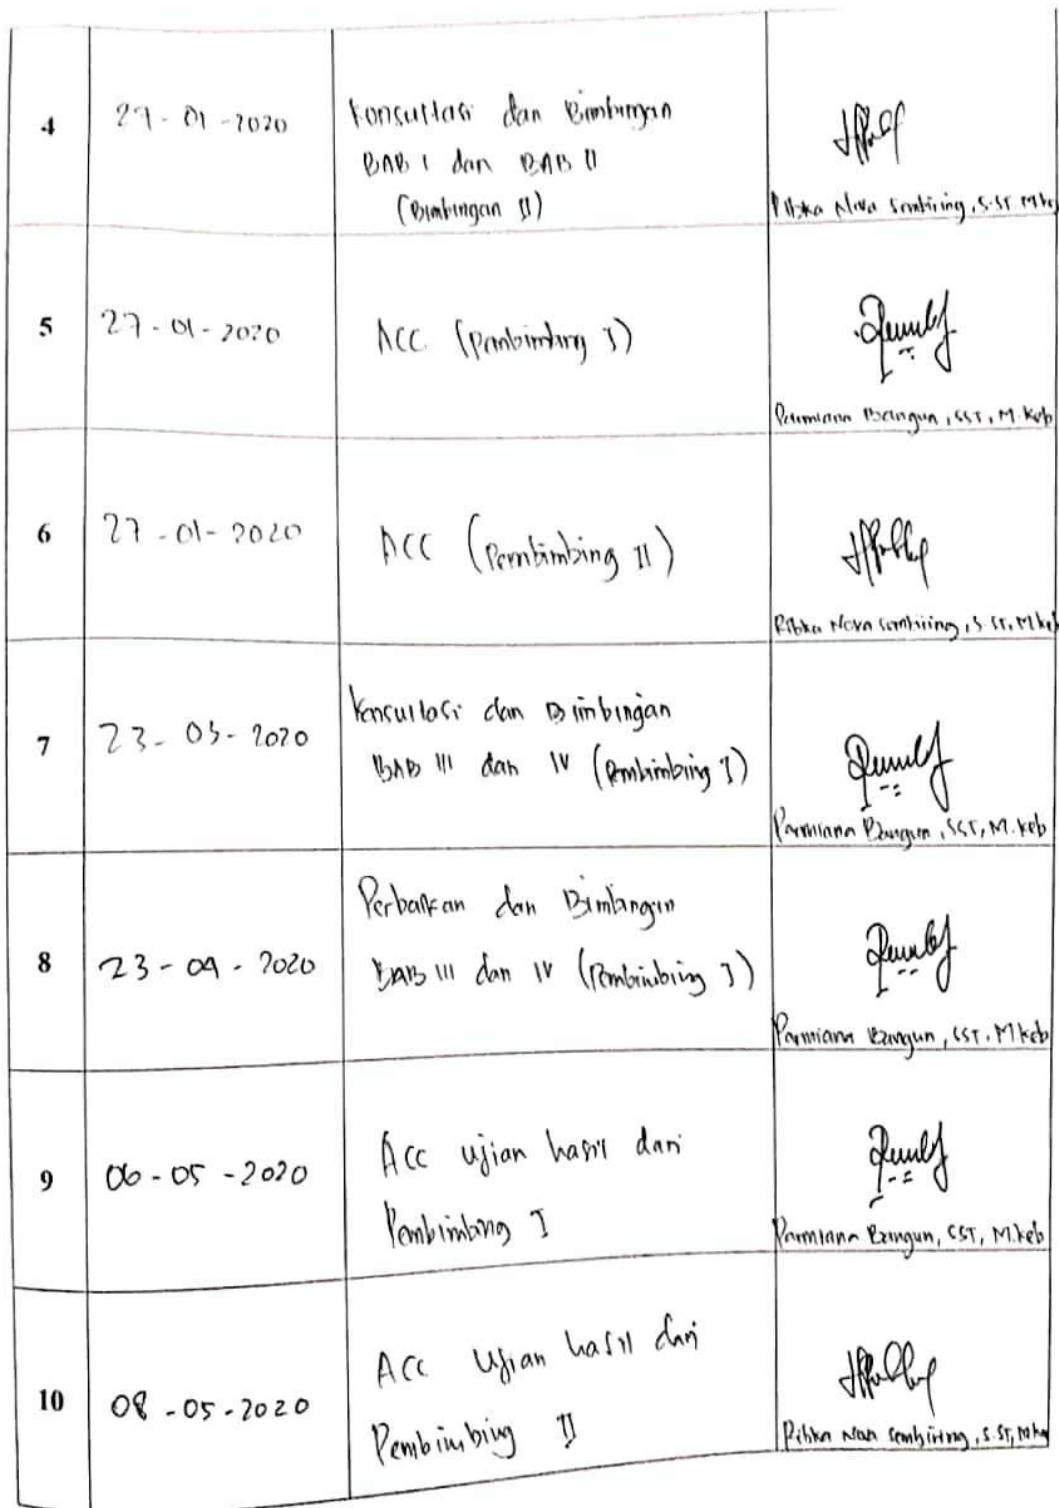 4
27-01-2020
Konsultasi dan Bimbingan
BAB I dan BAB II
(Bimbingan II)
Ribka Nova Sembiring, S.ST, M.Keb
5
27-01-2020
ACC (Pembimbing I)
Parmiana Bangun, SST, M.Keb
6
27-01-2020
ACC (Pembimbing II)
Ribka Nova Sembiring, S.ST, M.Keb
7
23-03-2020
Konsultasi dan Bimbingan
BAB III dan IV (Pembimbing I)
Parmiana Bangun, SST, M.Keb
8
23-04-2020
Perbaikan dan Bimbingan
BAB III dan IV (Pembimbing I)
Parmiana Bangun, SST, M.Keb
9
06-05-2020
ACC ujian hasil dari
Pembimbing I
Parmiana Bangun, SST, M.Keb
10
08-05-2020
ACC Ujian hasil dari
Pembimbing II
Ribka Nova Sembiring, S.ST, M.Keb